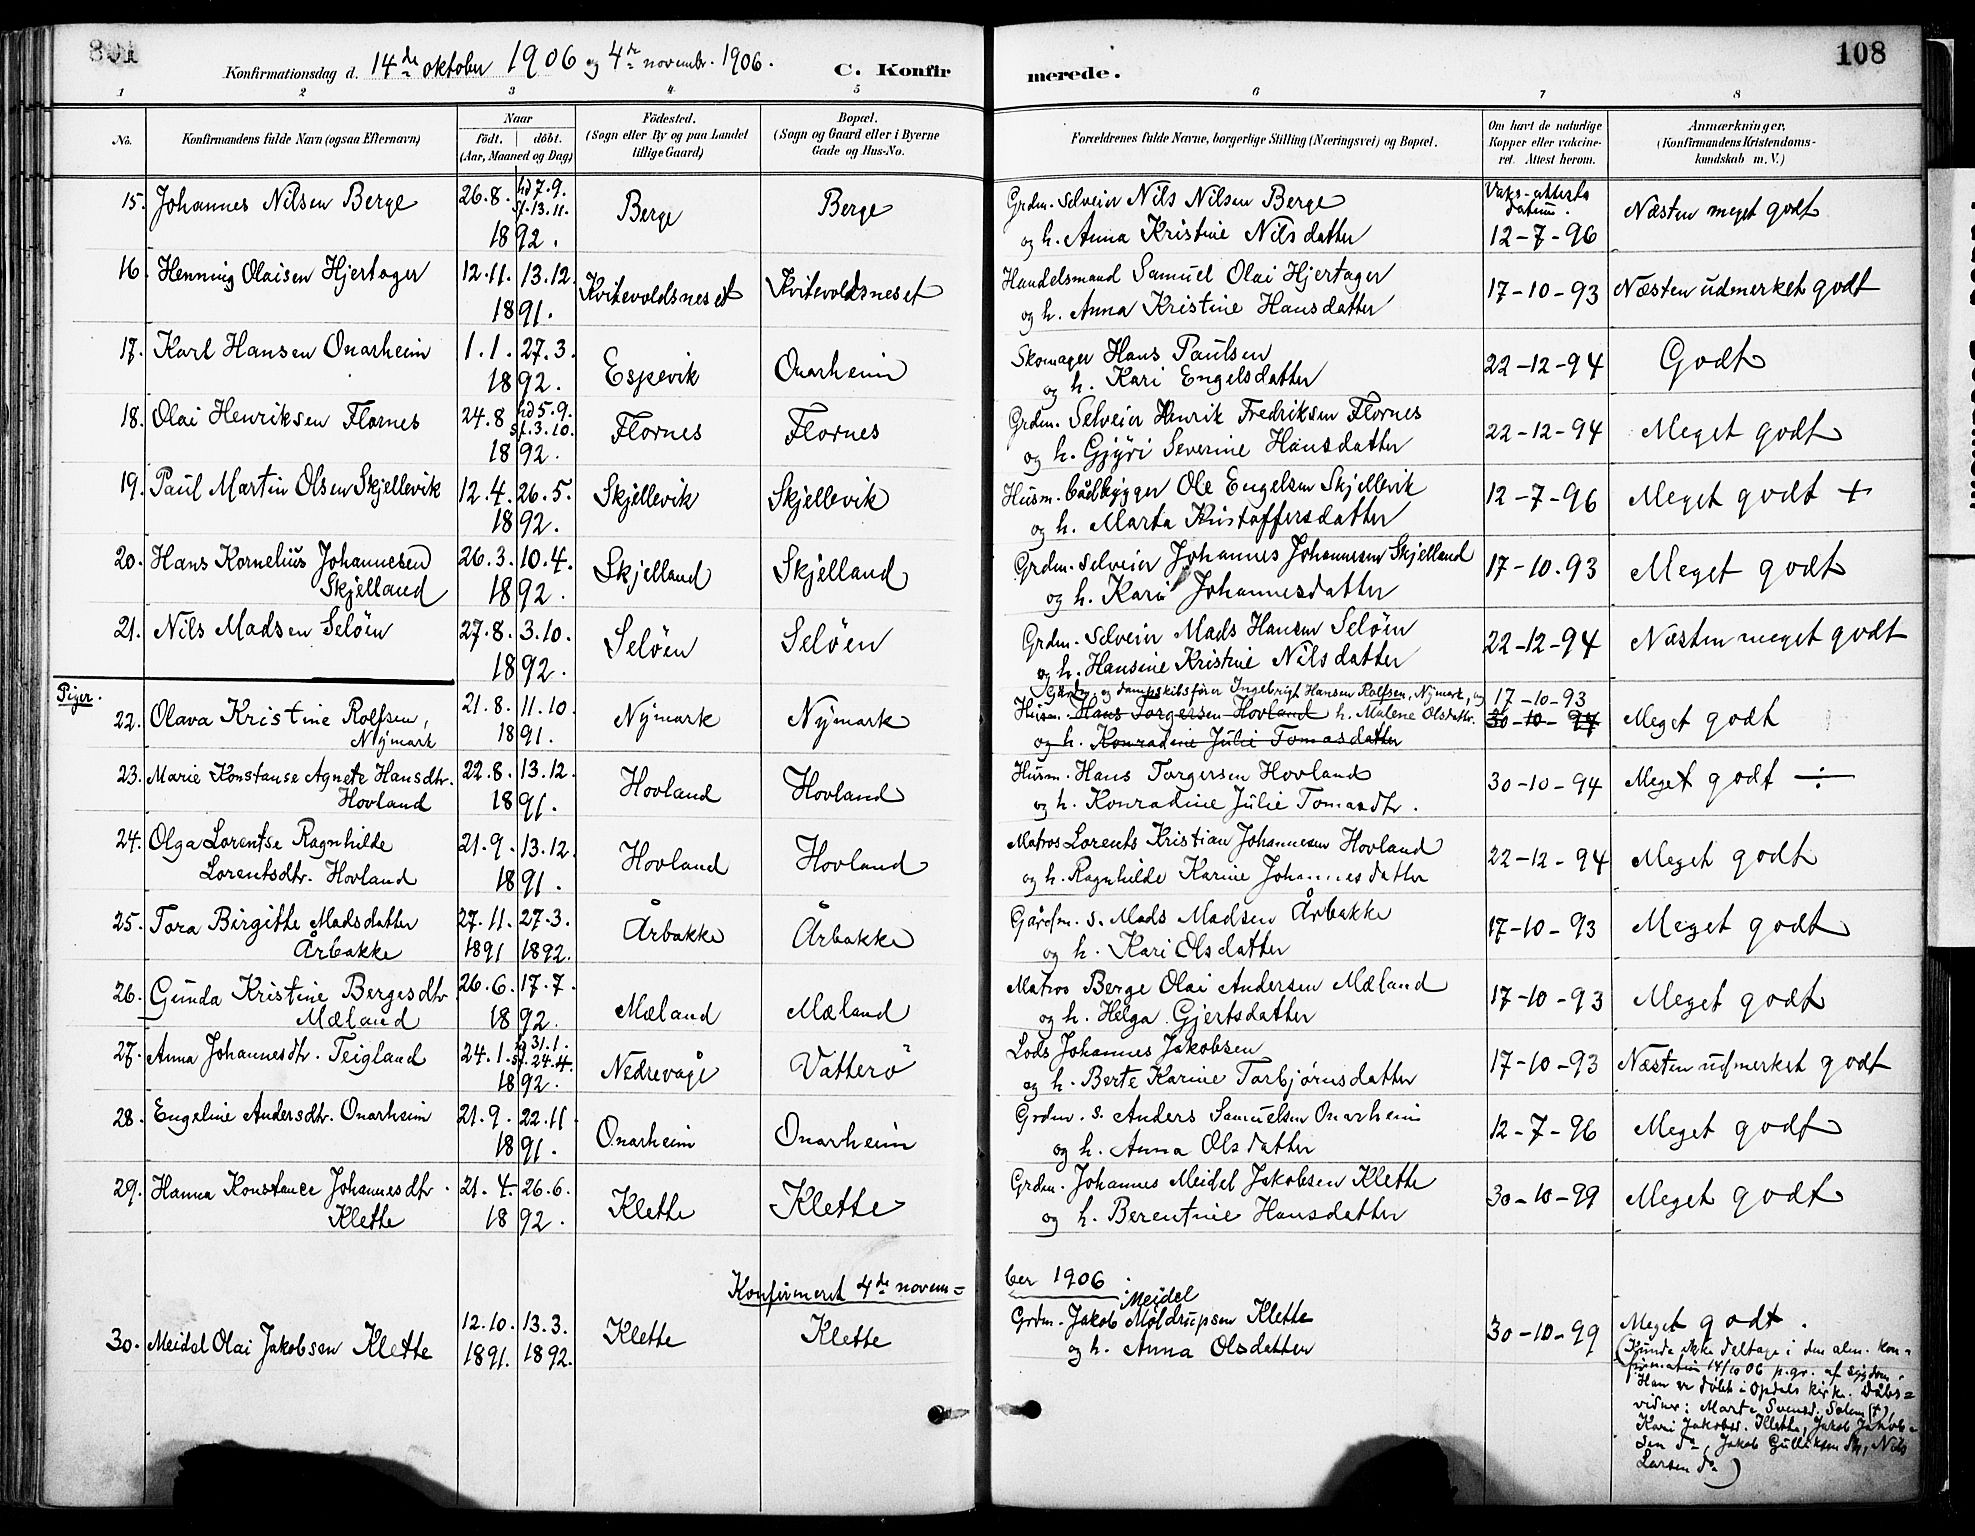 108
Konfirmationsdag d. 14de oktober 1906 og 4de novembr. 1906. C. Konfir merede.
1 2 3 4 5 6 7 8
No. Konfirmandens fulde Navn (ogsaa Efternavn) Naar født. døbt. (Aar, Maaned og Dag) Fødested. (Sogn eller By og paa Landet tillige Gaard) Bopæl. (Sogn og Gaard eller i Byerne Gade og Hus-No. Forældrenes fulde Navne, borgerlige Stilling (Næringsvei) og Bopæl. Om havt de naturlige Kopper eller vakcineret. Attest herom. Anmærkninger, (Konfirmandens Kristendomskundskab m. V.)
15. Johannes Nilsen Berge 26.8. hd 7.9. st. 13.11. Berge Berge Grdm. Selveier Nils Nilsen Berge Vaks-attests datum. Næsten meget godt
1892. og h. Anna Kristine Nilsdatter 12-7-96
16. Henning Olaisen Hjertager 12.11. 13.12. Kvitevoldsneset Kvitevoldsneset Handelsmand Samuel Olai Hjertager 17-10-93 Næsten udmerket godt
1891. og h. Anna Kristine Hansdatter
17. Karl Hansen Onarheim 1.1. 27.3. Espevik Onarheim Skomager Hans Paulsen 22-12-94 Godt
1892. og h. Kari Engelsdatter
18. Olai Henriksen Flornes 24.8 hd 5.9. st. 3.10. Flornes Flornes Grdm. Selveier Henrik Fredriksen Flornes 22-12-94 Meget godt
1892. og h. Gjyri Severine Hansdatter
19. Paul Martin Olsen Skjellevik 12.4. 26.5. Skjellevik Skjellevik Husm. båtbygger Ole Engelsen Skjellevik 12-7-96 Meget godt +
1892. og h. Marta Kristoffersdatter
20. Hans Kornelius Johannesen 26.3. 10.4. Skjelland Skjelland Grdm. selveier Johannes Johannesen Skjelland 17-10-93 Meget godt
Skjelland 1892. og h. Kari Johannesdatter
21. Nils Madsen Seløen 27.8. 3.10. Seløen Seløen Grdm. Selveier Mads Hansen Seløen 22-12-94 Næsten meget godt
1892. og h. Hansine Kristine Nilsdatter
Piger.
Gårdm. og dampskibsfører Ingebrigt Hansen Rolfsen, Nymark, og 17-10-93
22. Olava Kristine Rolfsen, 21.8. 11.10. Nymark Nymark Husm. Hans Torgersen Hovland h. Malene Olsdatter. 30-10-94 Meget godt
Nymark 1891. og h. Konradine Julie Tomasdatter
23. Marie Konstanse Agnete Hansdtr. 22.8. 13.12. Hovland Hovland Husm. Hans Torgersen Hovland 30-10-94 Meget godt ÷
Hovland 1891. og h. Konradine Julie Tomasdtr.
24. Olga Lorentse Ragnhilde 21.9. 13.12. Hovland Hovland Matros Lorents Kristian Johannesen Hovland 22-12-94 Meget godt
Lorentsdtr. Hovland 1891. og h. Ragnhilde Karine Johannesdatter
25. Tora Birgitte Madsdatter 27.11. 27.3. Årbakke Årbakke Gårdm. s. Mads Madsen Årbakke 17-10-93 Meget godt
Årbakke 1891 1892. og h. Kari Olsdatter
26. Gunda Kristine Bergesdtr 26.6. 17.7. Mæland Mæland Matros Berge Olai Andersen Mæland 17-10-93 Meget godt
Mæland 1892. og h. Helga Gjertsdatter
27. Anna Johannesdtr. Teigland 24.1. hd 31.1. st. 24.4. Nedrevåge Vatterö Lods Johannes Jakobsen 17-10-93 Næsten udmerket godt
1892. og h. Berte Karine Torbjørnsdatter
28. Engeline Andersdtr. Onarheim 21.9. 22.11. Onarheim Onarheim Grdm. s. Anders Samuelsen Onarheim 12-7-96 Meget godt
1891. og h. Anna Olsdatter
29. Hanna Konstance Johannesdtr. 21.4. 26.6. Klette Klette Grdm. Johannes Meidel Jakobsen Klette 30-10-99 Meget godt
Klette 1892. og h. Berentine Hansdatter
Konfirmeret 4de novem= ber 1906
Meidel
30. Meidel Olai Jakobsen Klette 12.10. 13.3. Klette Klette Grdm. Jakob Møldrupsen Klette 30-10-99 Meget godt.
1891. 1892. og h. Anna Olsdatter
(Kunde ikke deltage i den alm. kon=
firmation 14/10 06 p.gr. af sygdom.
Han er døbt i Opdals kirke. Dåbs=
vidner: Marta Svensd. Solem (†),
Kari Jakobsd. Klette, Jakob Jakob=
sen do, Jakob Gulliksen do, Nils
Larsen do)